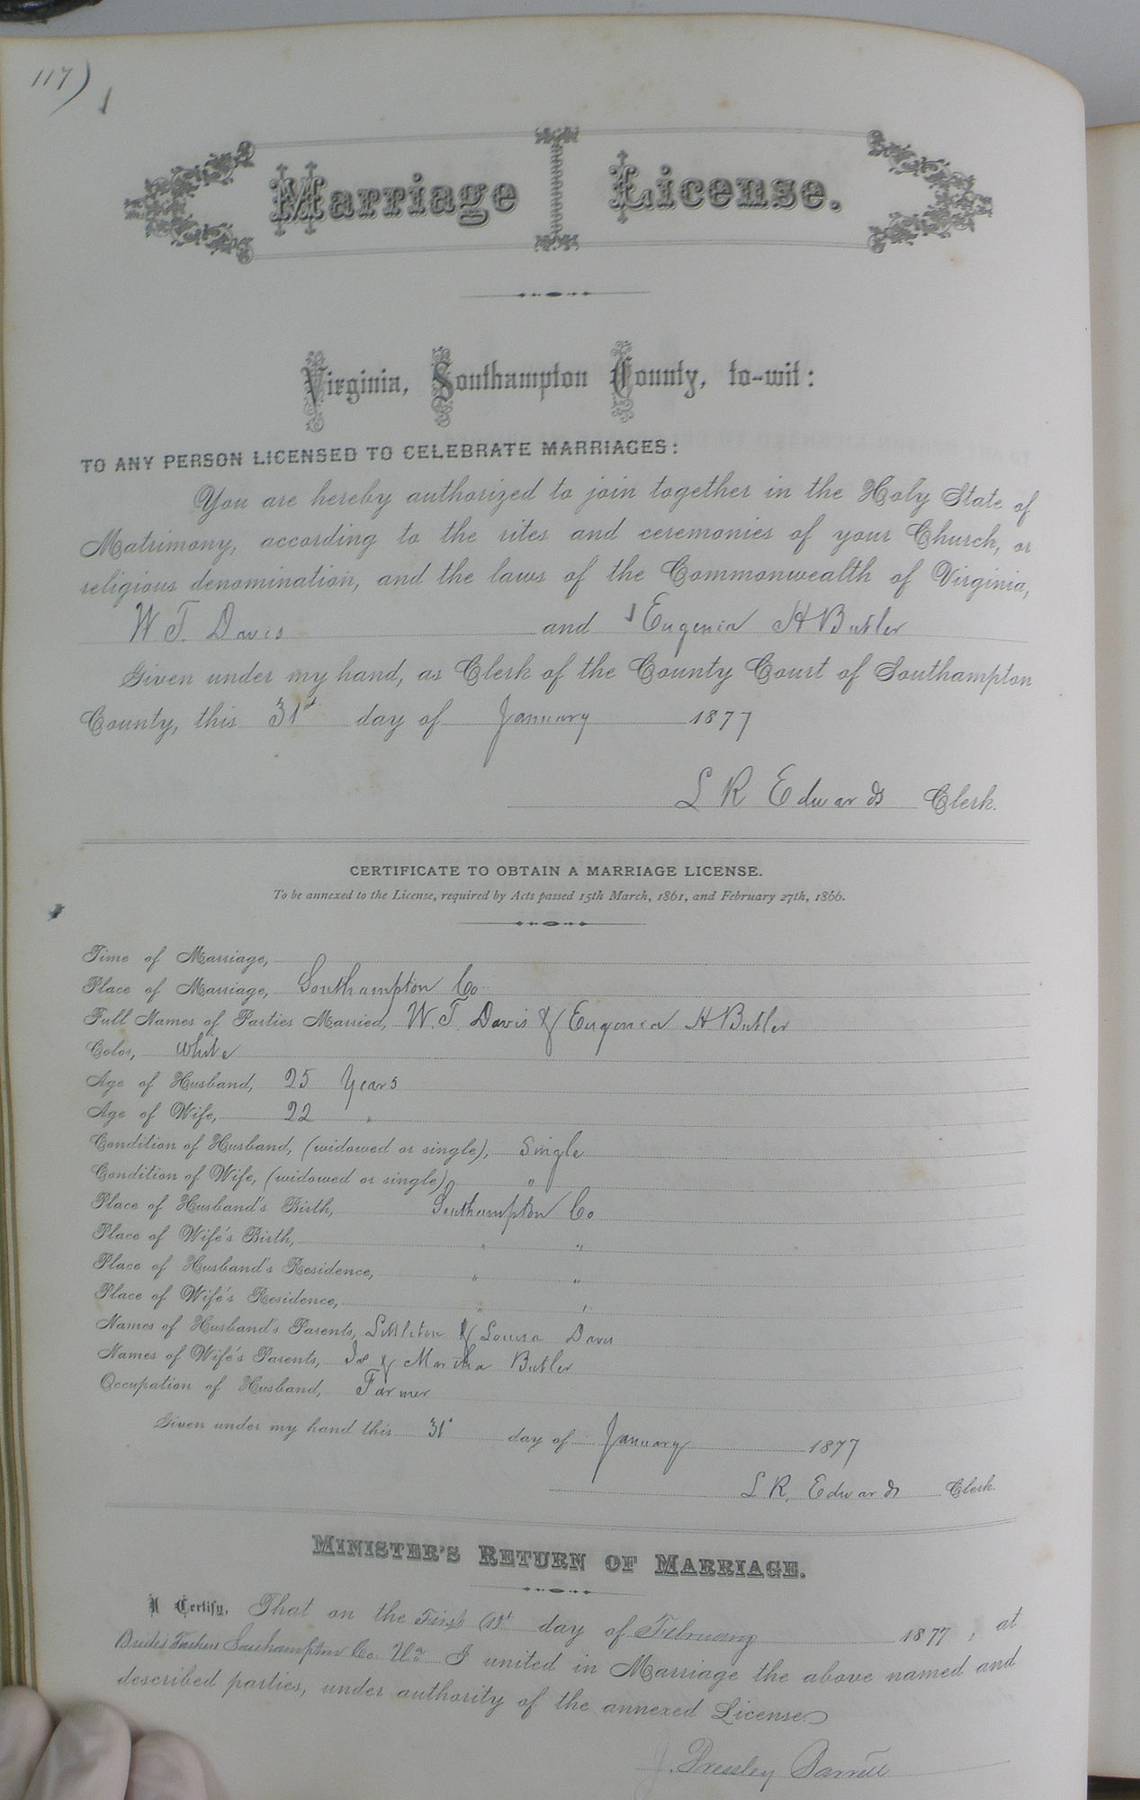 117)
Marriage License.
Virginia, Southampton County, to-wit:
TO ANY PERSON LICENSED TO CELEBRATE MARRIAGES:
You are hereby authorized to join together in the Holy State of
Matrimony, according to the rites and ceremonies of your Church, or
religious denomination, and the laws of the Commonwealth of Virginia,
W. T. Davis and Eugenia H Butler
Given under my hand, as Clerk of the County Court of Southampton
County, this 31st day of January 1877
L R Edwards Clerk.
CERTIFICATE TO OBTAIN A MARRIAGE LICENSE.
To be annexed to the License, required by Acts passed 15th March, 1861, and February 27th, 1866.
Time of Marriage,
Place of Marriage, Southampton Co
Full Names of Parties Married, W. T. Davis & Eugenia H Butler
Color, White
Age of Husband, 25 Years
Age of Wife, 22 "
Condition of Husband, (widowed or single), Single
Condition of Wife, (widowed or single) "
Place of Husband's Birth, Southampton Co
Place of Wife's Birth, " "
Place of Husband's Residence, " "
Place of Wife's Residence, " "
Names of Husband's Parents, Littleton & Louisa Davis
Names of Wife's Parents, & Martha Butler
Occupation of Husband, Farmer
Given under my hand this 31st day of January 1877
L R. Edwards Clerk.
MINISTER'S RETURN OF MARRIAGE.
I Certify, That on the First (1st day of February 1877, at
Brides Fathers Southampton Co. Va. I united in Marriage the above named and
described parties, under authority of the annexed License
J. Pressley Barrett